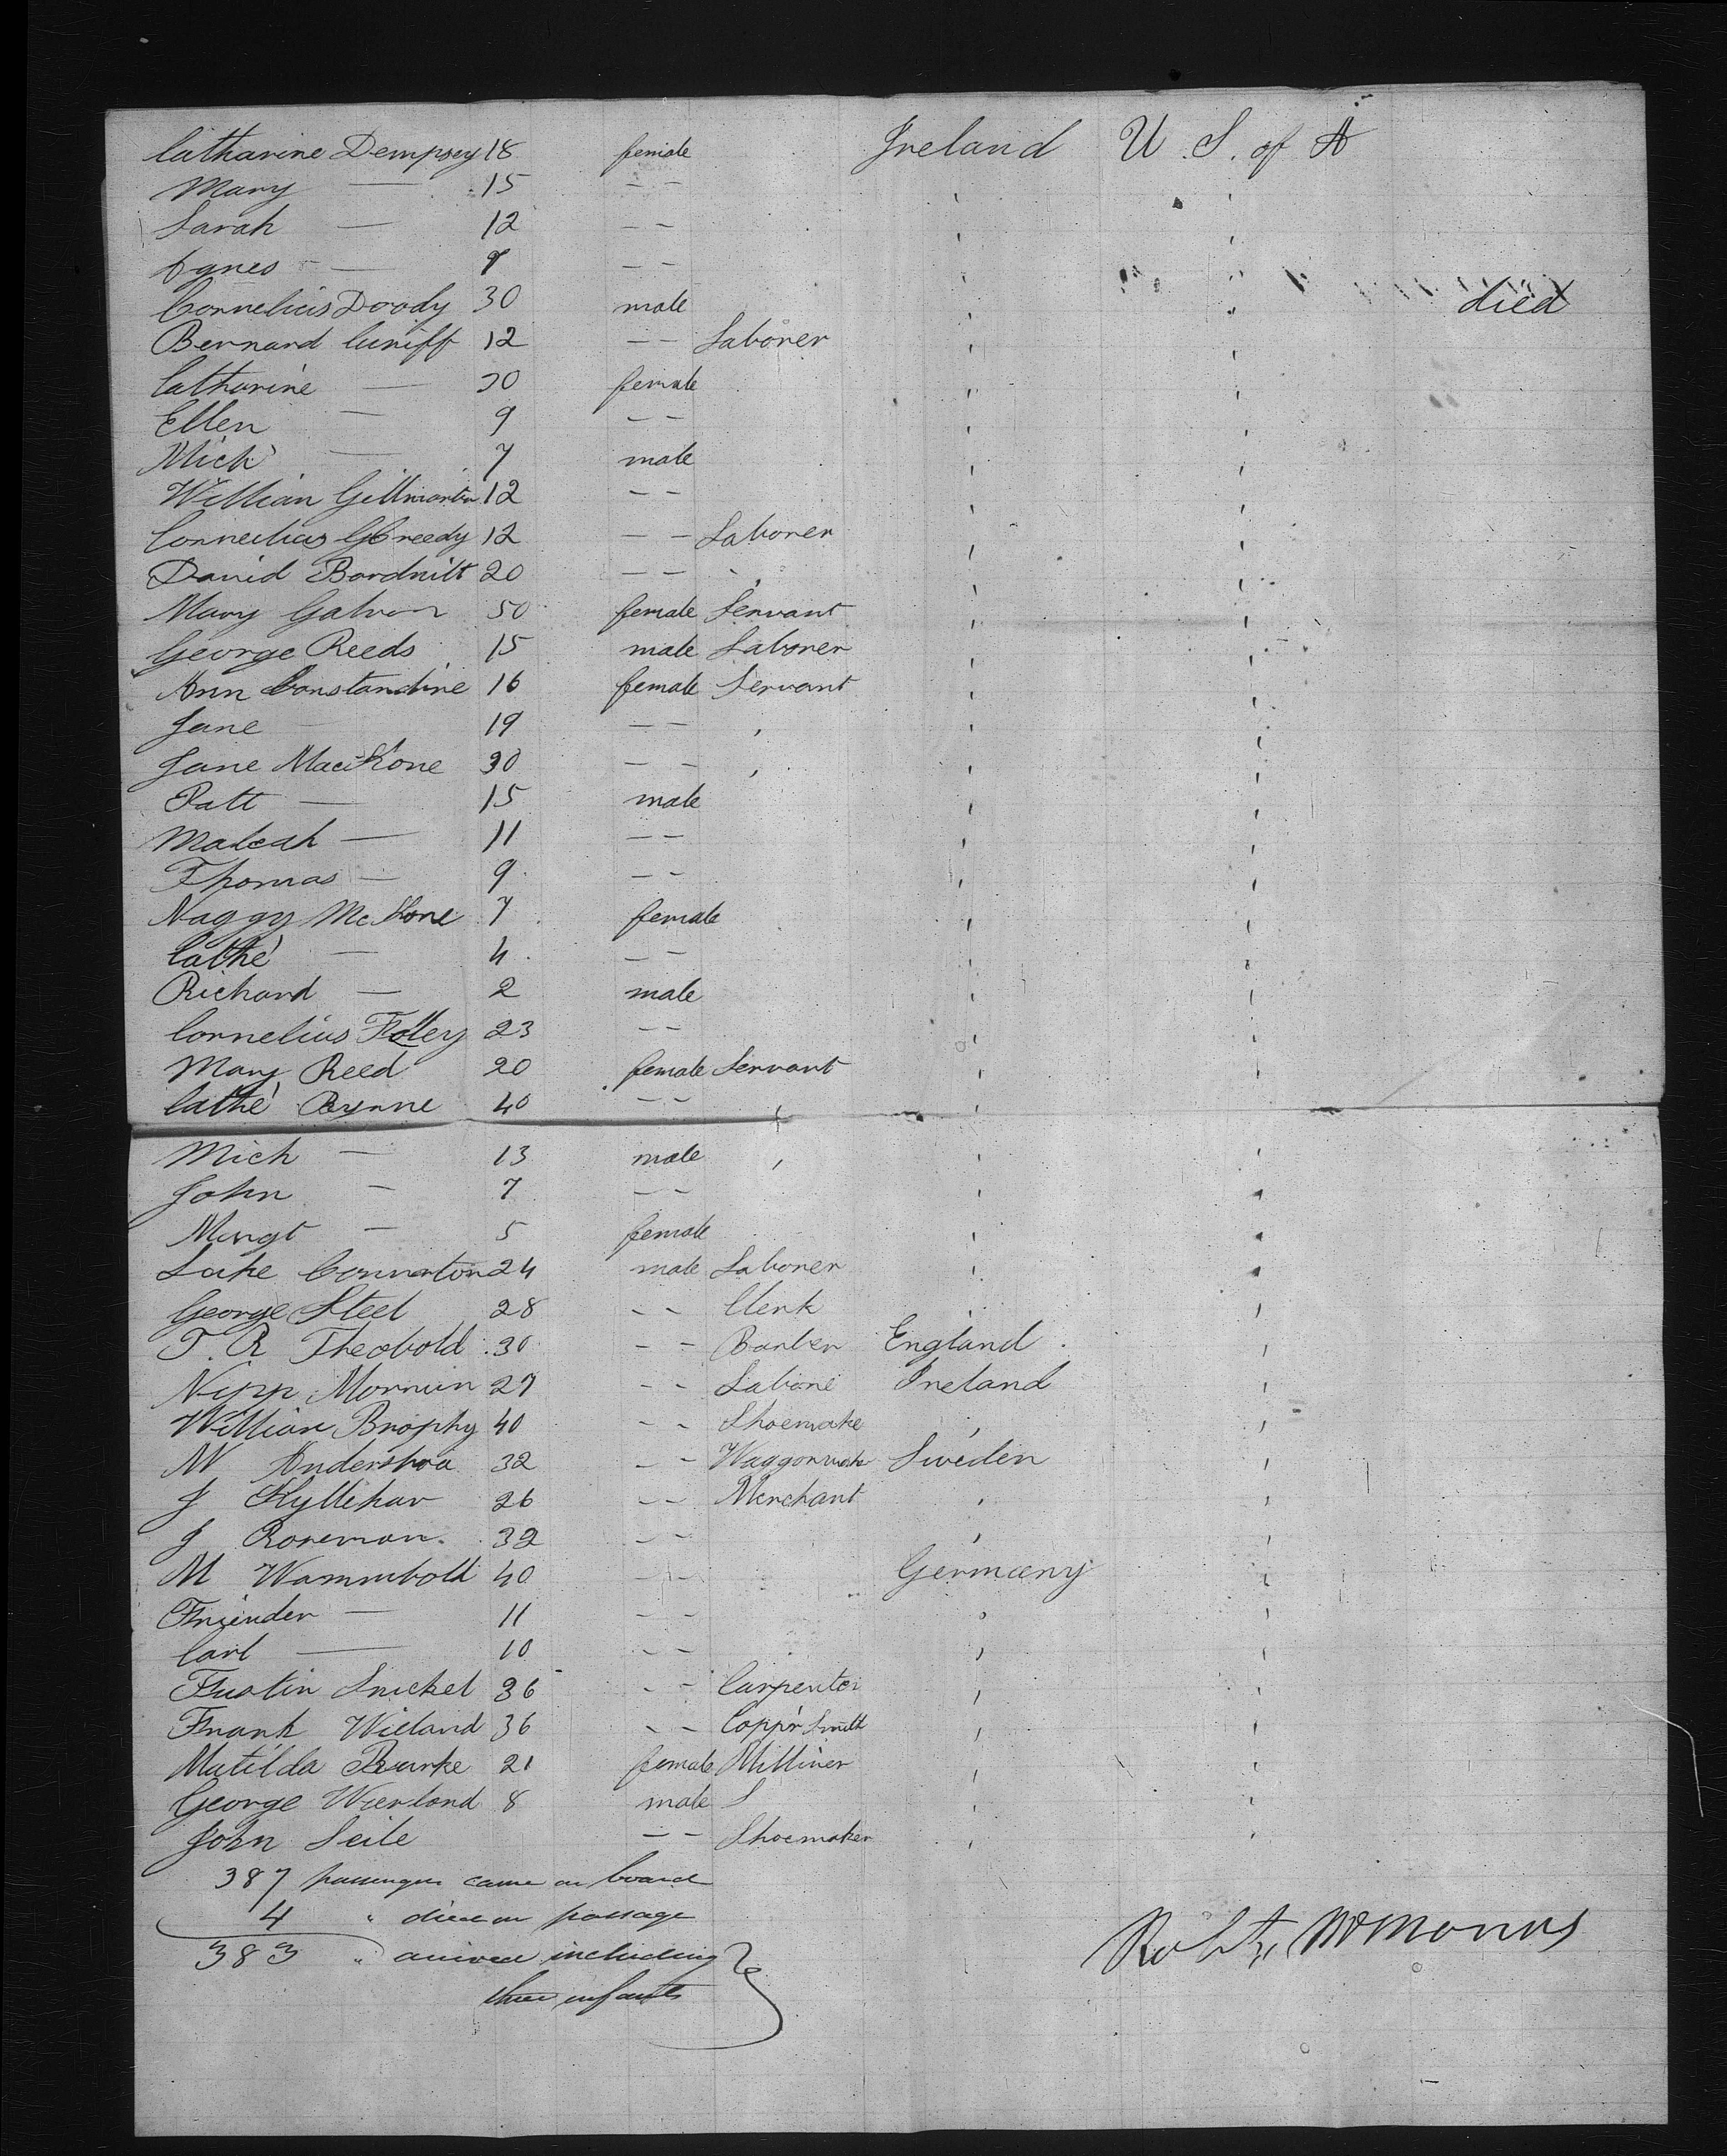 Catharine Dempsey 18 female Ireland U. S. of A
Mary — 15 — —
Sarah — 12 — —
Agnes — 9 — —
Cornelius Doody 30 male died
Bernard Cuniff 12 — — Laborer
Catharine — 30 female
Ellen — 9 — —
Mich — 7 male
William Gillmartin 12 — —
Cornelius 12 — — Laborer
David 20 — — ,
Mary Galvan 50 female Servant
George Reeds 15 male Laborer
Ann Constandine 16 female Servant
Jane — 19 — — ,
Jane MacKone 30 — — ,
Patt — 15 male
— 11 — —
Thomas — 9 — —
Naggy McKone 7 female
Cathe — 4 — —
Richard — 2 male
Cornelius Folley 23 — —
Mary Reed 20 female Servant
Cathe Byrnne 40 — — ,
Mich — 13 male ,
John — 7 — —
Margt — 5 female
Luke Connerton 24 male Laborer
George Steel 28 — — Clerk
T. R Theobold 30 — — Barber England
Mornin 27 — — Labore Ireland
William Brophy 40 — — Shoemake ,
32 — — Sweden
J 26 — — Merchant ,
J Roseman 32 — — ,
M Wammbold 40 — — Germany
— 11 — —
Carl — 10 — —
Snickel 36 — — Carpenter
Frank Wieland 36 — — Copp'r Smith
Matilda Burke 21 female Milliner
George Wierland 8 male S
John Seile — — Shoemaker
387 passengers came on board
4 " died on passage
383 " arrived including
three infants
Robt McMonus